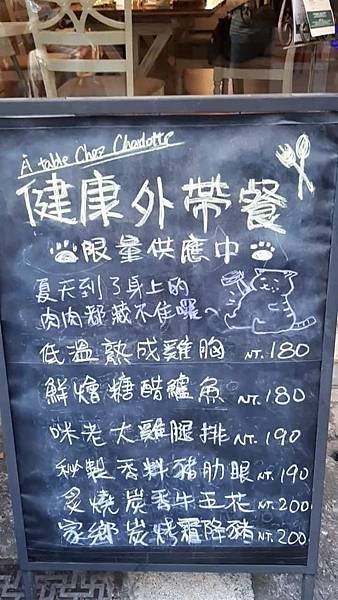 À table Chez Charlotte
健康外帶餐
限量供應中
夏天到了身上的
肉肉都藏不住囉~
低溫熟成雞胸 NT.180
鮮燴糖醋鱸魚 NT.180
咪老大雞腿排 NT.190
秘製香料豬肋眼 NT.190
炙燒炭香牛五花 NT.200
家鄉炭烤霜降豬 NT.200